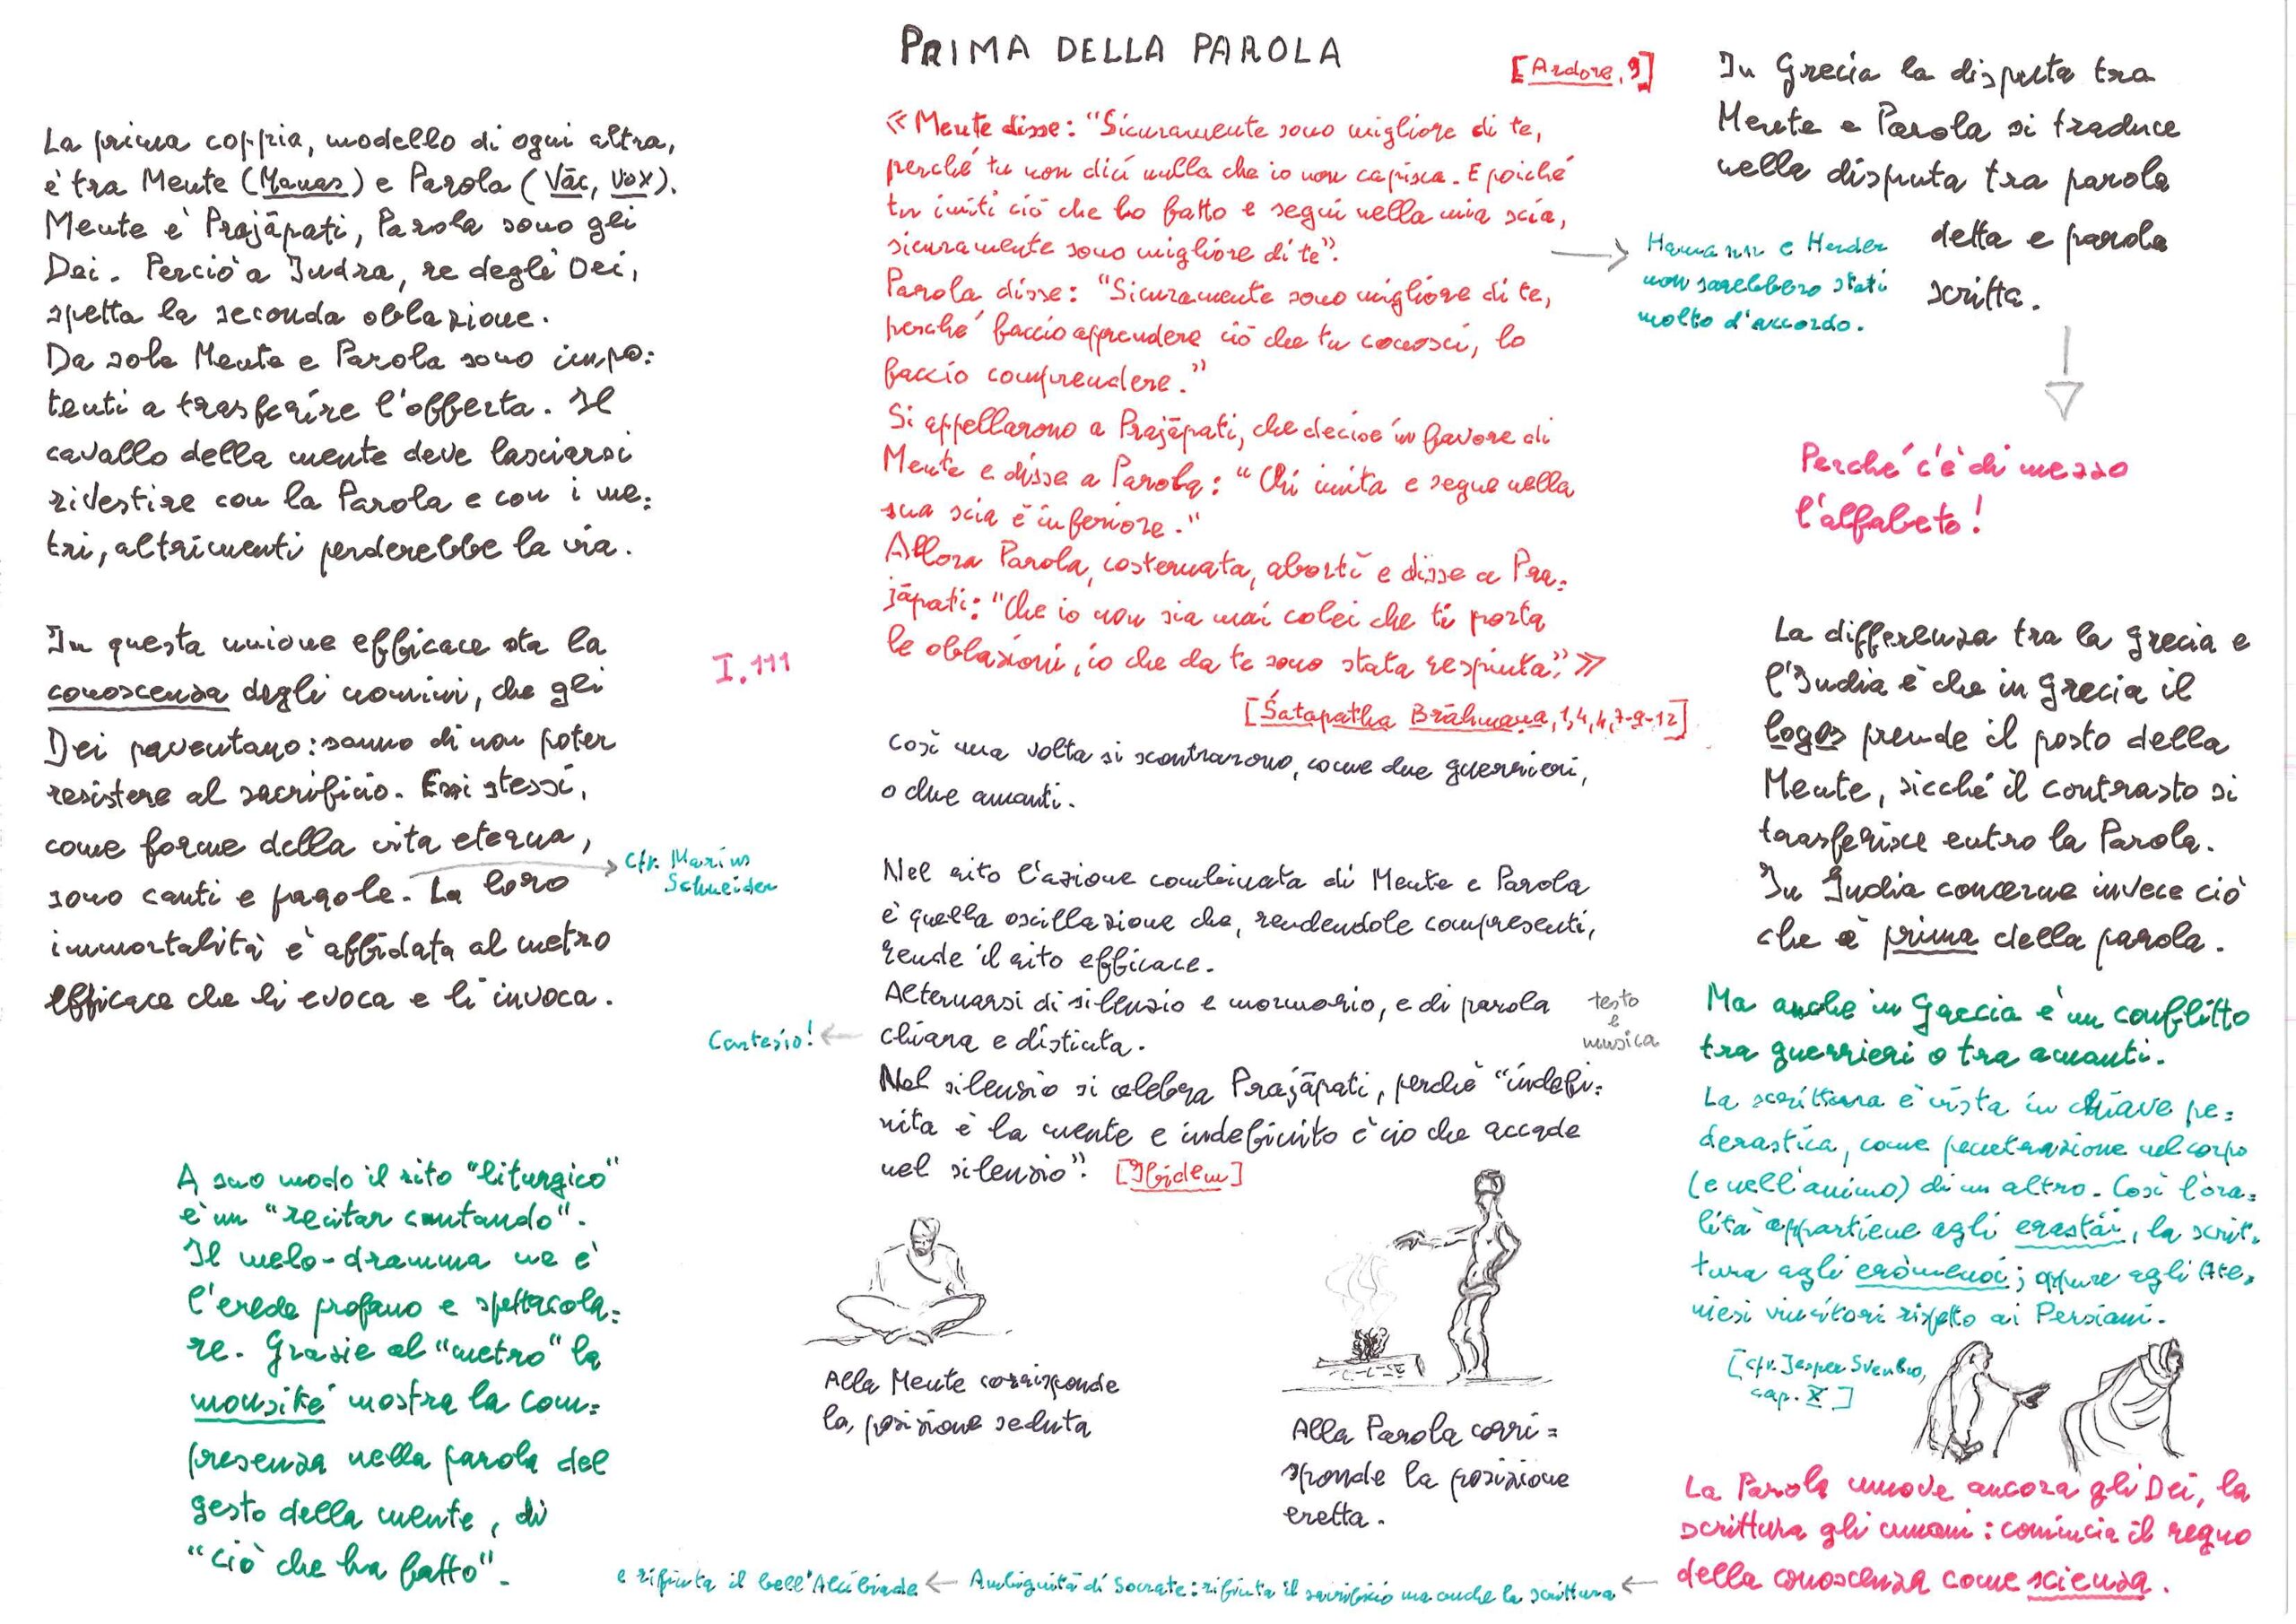 PRIMA DELLA PAROLA
La prima coppia, modello di ogni altra,
è tra Mente (Manas) e Parola (Vāc, Vox).
Mente è Prajāpati, Parola sono gli
Dei. Perciò a Indra, re degli Dei,
spetta la seconda oblazione.
Da sole Mente e Parola sono impo=
tenti a trasferire l'offerta. Il
cavallo della mente deve lasciarsi
rivestire con la Parola e con i me=
tri, altrimenti perderebbe la via.
In questa unione efficace sta la
conoscenza degli uomini, che gli
Dei paventano: sanno di non poter
resistere al sacrificio. Essi stessi,
come forme della vita eterna,
sono canti e parole. La loro
immortalità è affidata al metro
efficace che li evoca e li invoca.
cfr. Marius
Schneider
I.111
A suo modo il rito "liturgico"
è un "recitar cantando".
Il melo-dramma ne è
l'erede profano e spettacola=
re. Grazie al "metro" la
mousiké mostra la com=
presenza nella parola del
gesto della mente, di
"ciò che ha fatto".
[Ardore, 9]
«Mente disse: "Sicuramente sono migliore di te,
perché tu non dici nulla che io non capisca. E poiché
tu imiti ciò che ho fatto e segui nella mia scia,
sicuramente sono migliore di te".
Parola disse: "Sicuramente sono migliore di te,
perché faccio apprendere ciò che tu conosci, lo
faccio comprendere."
Si appellarono a Prajāpati, che decise in favore di
Mente e disse a Parola: "Chi imita e segue nella
sua scia è inferiore."
Allora Parola, costernata, abortì e disse a Pra=
jāpati: "Che io non sia mai colei che ti porta
le oblazioni, io che da te sono stata respinta."»
[Śatapatha Brāhmaṇa, 1,4,4,7-9-12]
Così una volta si scontrarono, come due guerrieri,
o due amanti.
Nel rito l'azione combinata di Mente e Parola
è quella oscillazione che, rendendole compresenti,
rende il rito efficace.
Alternarsi di silenzio e mormorio, e di parola
chiara e distinta.
Cartesio!
testo
e
musica
Nel silenzio si celebra Prajāpati, perché "indefi=
nita è la mente e indefinito è ciò che accade
nel silenzio". [Ibidem]
Alla Mente corrisponde
la posizione seduta
Alla Parola corri=
sponde la posizione
eretta.
In Grecia la disputa tra
Mente e Parola si traduce
nella disputa tra parola
detta e parola
scritta.
Hamann e Herder
non sarebbero stati
molto d'accordo.
Perché c'è di mezzo
l'alfabeto!
La differenza tra la Grecia e
l'India è che in Grecia il
logos prende il posto della
Mente, sicché il contrasto si
trasferisce entro la Parola.
In India concerne invece ciò
che è prima della parola.
Ma anche in Grecia è un conflitto
tra guerrieri o tra amanti.
La scrittura è vista in chiave pe=
derastica, come penetrazione nel corpo
(e nell'animo) di un altro. Così l'ora=
lità appartiene agli erastái, la scrit=
tura agli eròmenoi; oppure agli Ate=
niesi vincitori rispetto ai Persiani.
[cfr. Jesper Svenbro,
cap. X]
La Parola muove ancora gli Dei, la
scrittura gli umani: comincia il regno
della conoscenza come scienza.
Ambiguità di Socrate: rifiuta il sacrificio ma anche la scrittura
e rifiuta il bell'Alcibiade